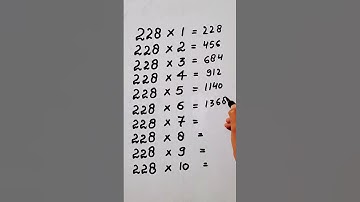 228 × 1 = 228
228 × 2 = 456
228 × 3 = 684
228 × 4 = 912
228 × 5 = 1140
228 × 6 = 1368
228 × 7 =
228 × 8 =
228 × 9 =
228 × 10 =